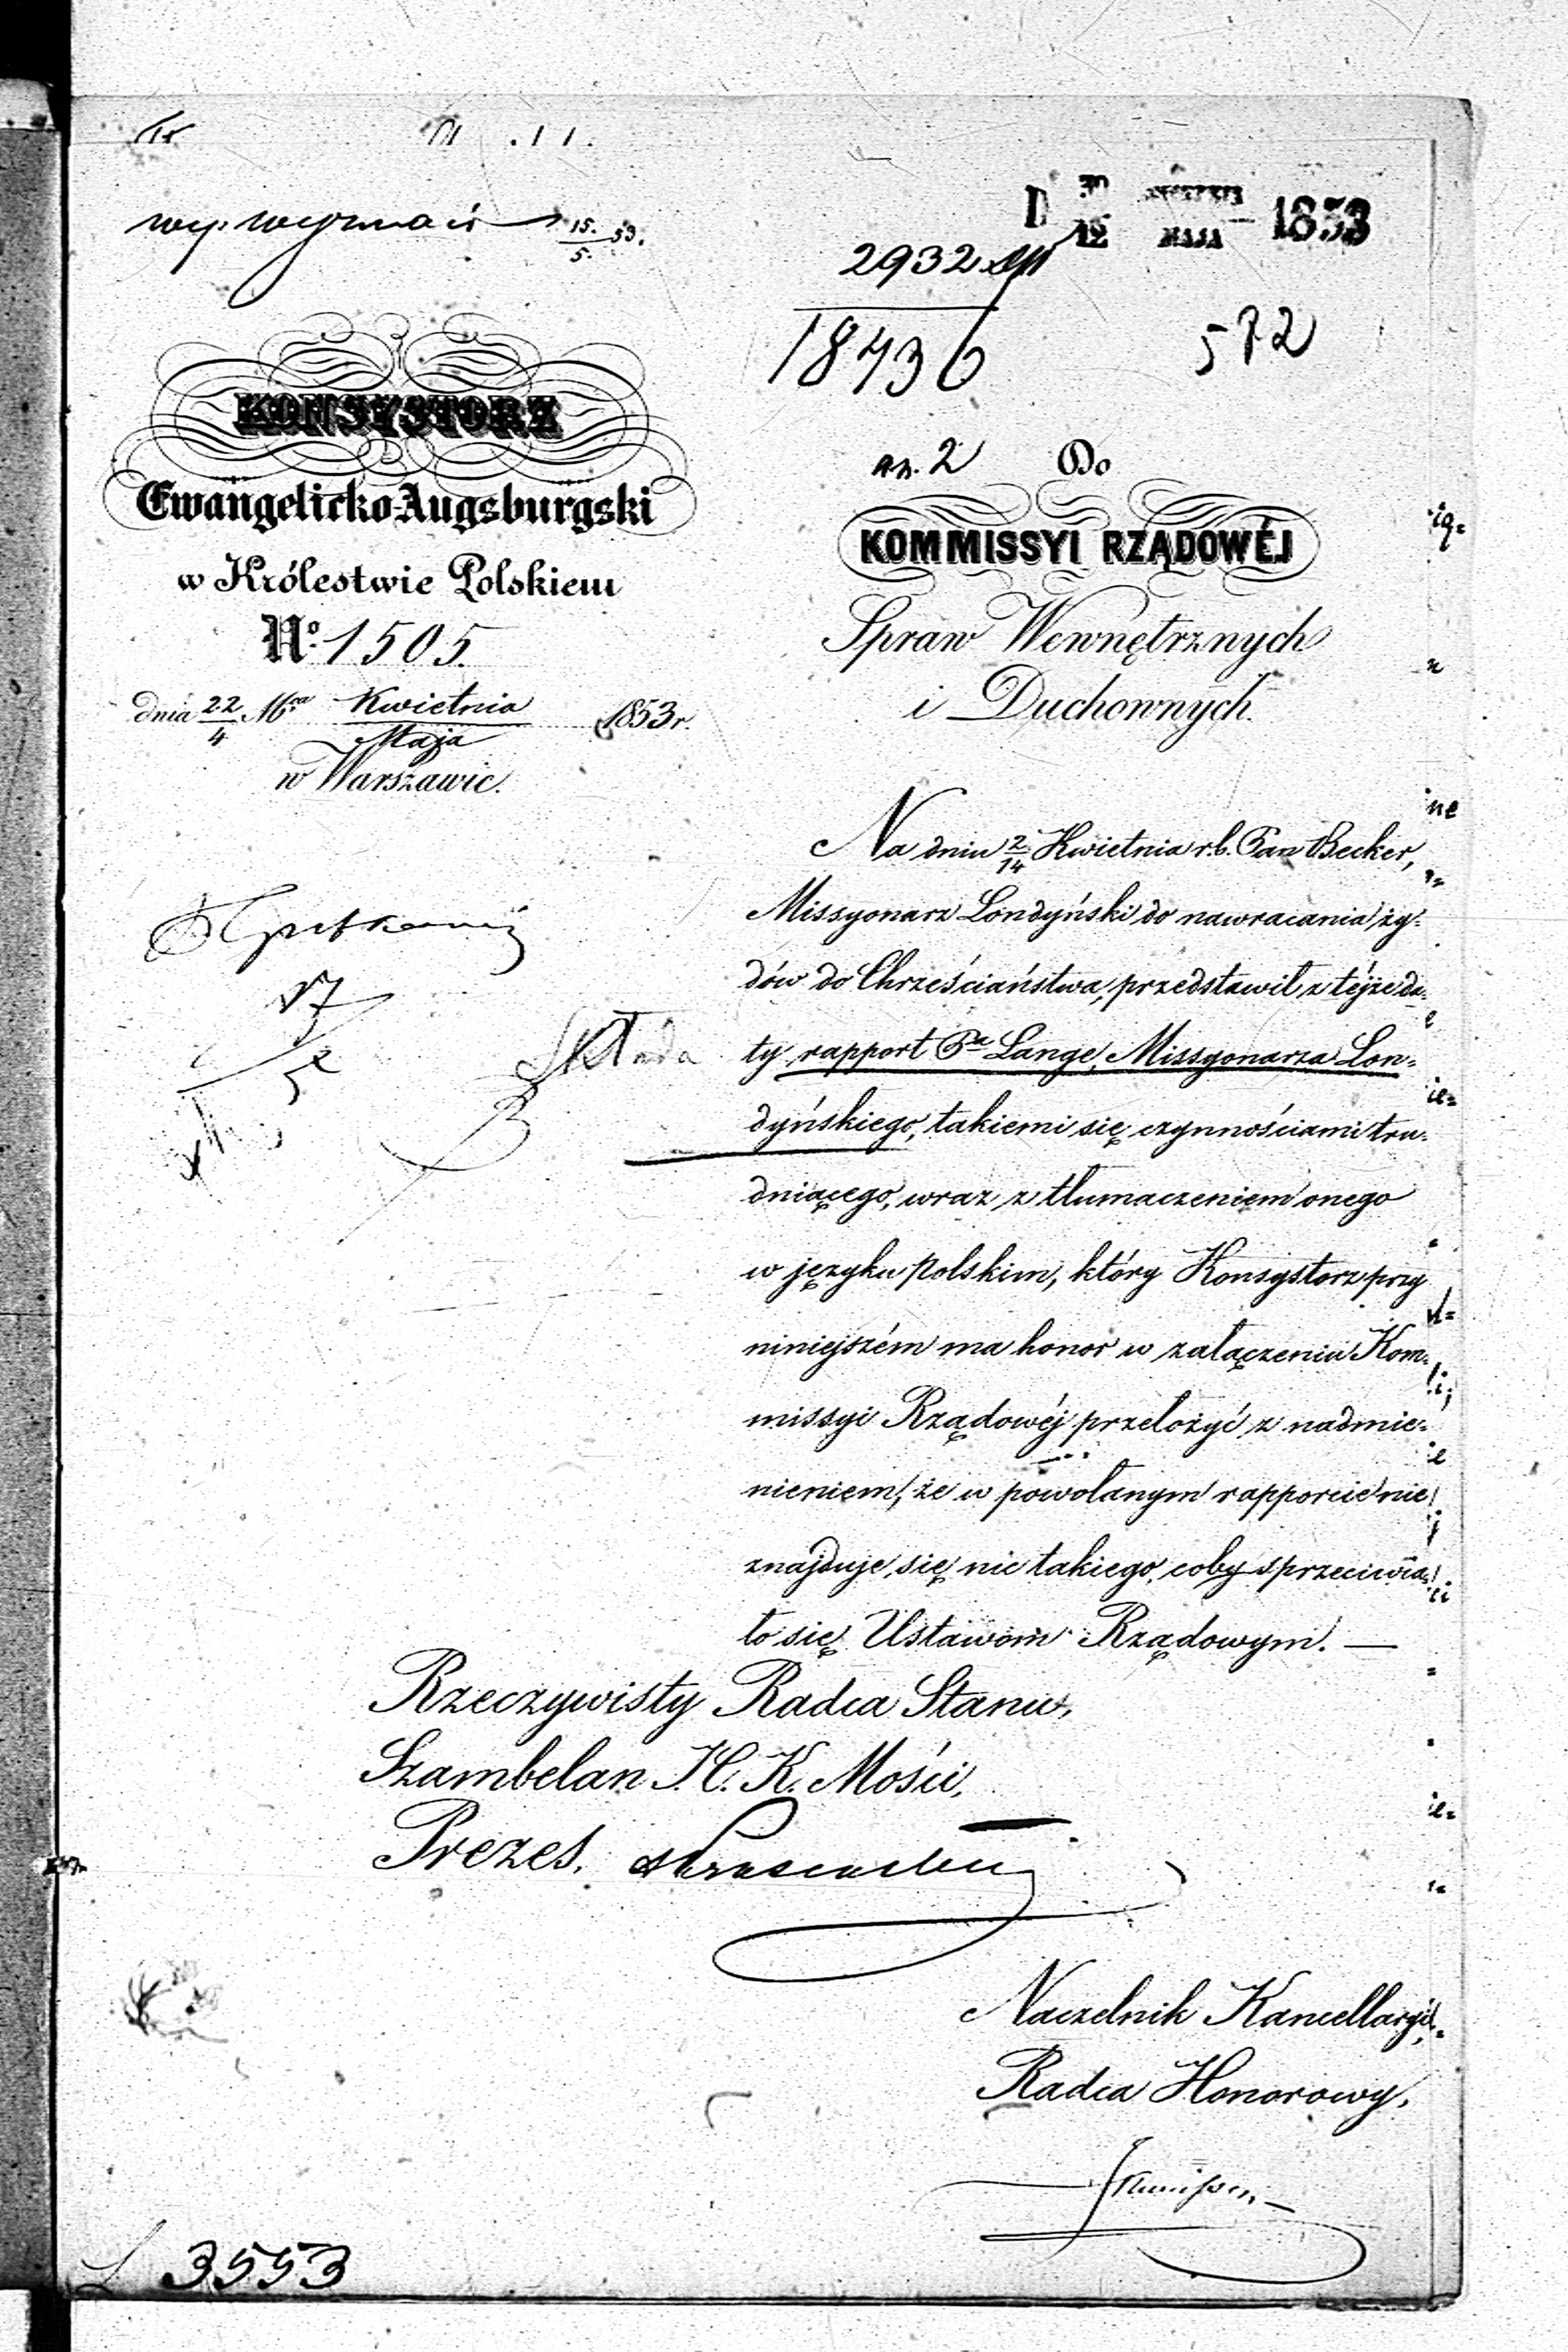 15./5. 53.
D 30/12 KWIETNIA/MAJA 1853
2932
18436
572
KONSYSTORZ
Ewangelicko-Augsburgski
w Królestwie Polskiem
No. 1505.
dnia 22/4 Mca Kwietnia/Maja 1853 r.
w Warszawie.
an. 2 Do
KOMMISSYI RZĄDOWÉJ
Spraw Wewnętrznych
i Duchownych.
Na dniu 2/14 Kwietnia r.b. Pan Becker,
Missyonarz Londyński do nawracania ży-
dów do Chrześciaństwa, przedstawił z téjże da-
ty rapport Pa Lange, Missyonarza Lon-
dyńskiego, takiemi się czynnościami tru-
dniącego, wraz z tłumaczeniem onego
w języku polskim, który Konsystorz przy
niniejszém ma honor w załączeniu Kom-
missyi Rządowéj przełożyć z nadmie-
nieniem, że w powołanym rapporcie nie
znajduje się nic takiego, coby sprzeciwia-
ło się Ustawom Rządowym. —
Składa
Rzeczywisty Radca Stanu,
Szambelan J. C. K. Mości,
Prezes.
Naczelnik Kancellaryi,
Radca Honorowy,
3553